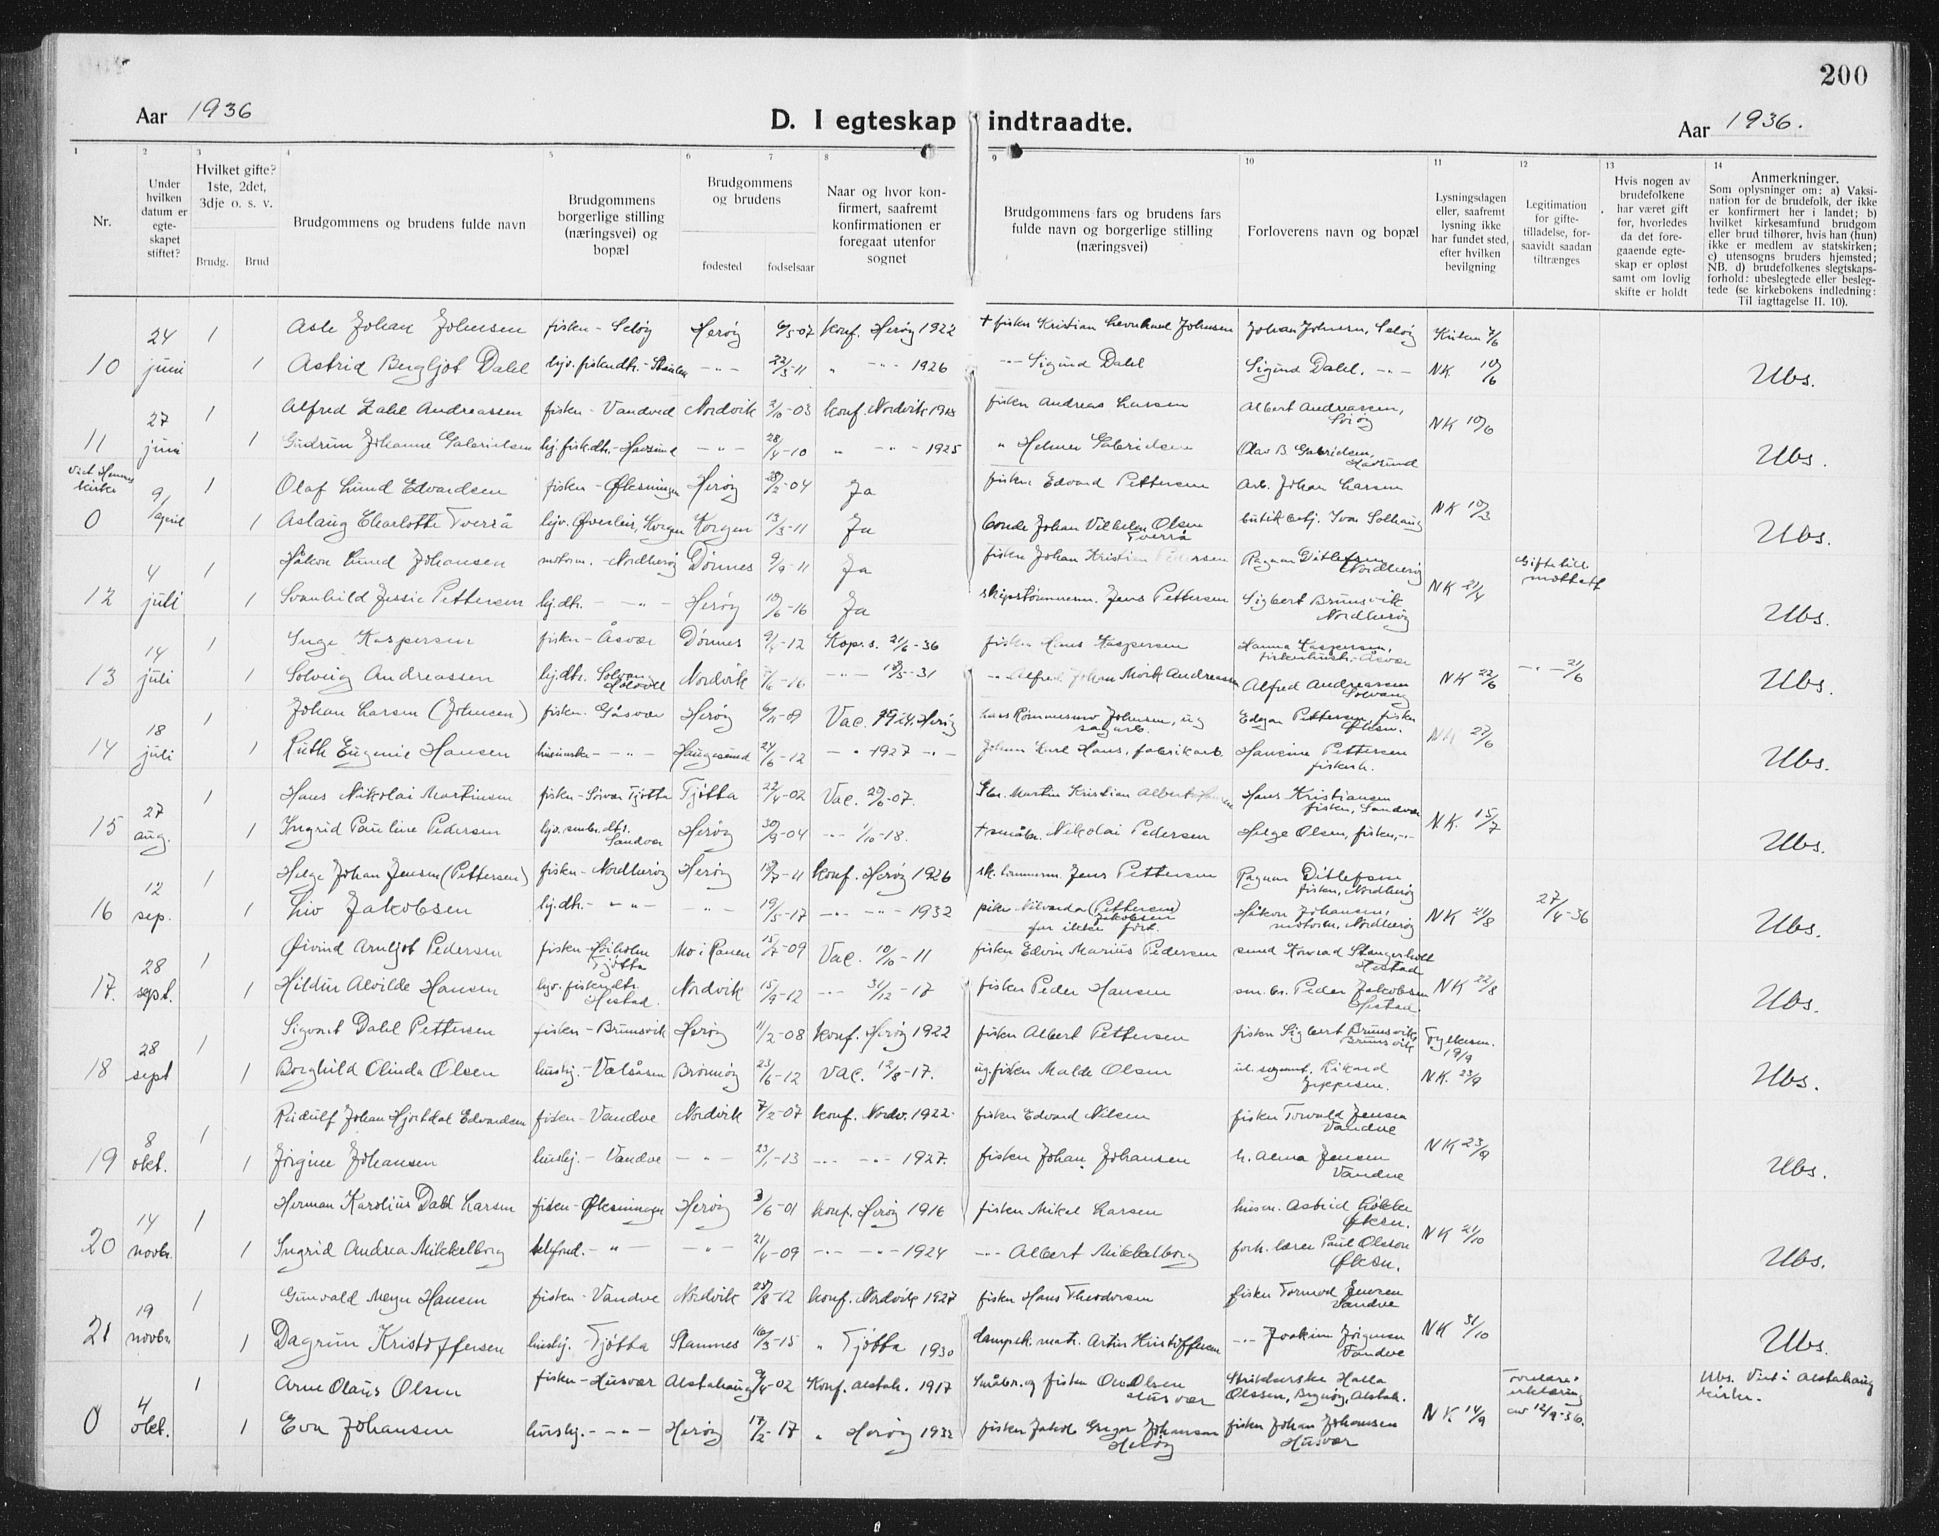 200
Aar 1936
D. I egteskap indtraadte.
Aar 1936.
1 2 3 4 5 6 7 8 9 10 11 12 13 14
Nr.
Under hvilken datum er egte- skapet stiftet?
Hvilket gifte? 1ste, 2det, 3dje o. s. v.
Brudg. Brud
Brudgommens og brudens fulde navn
Brudgommens borgerlige stilling (næringsvei) og bopæl
Brudgommens og brudens
fødested fødselsaar
Naar og hvor kon- firmert, saafremt konfirmationen er foregaat utenfor sognet
Brudgommens fars og brudens fars fulde navn og borgerlige stilling (næringsvei)
Forloverens navn og bopæl
Lysningsdagen eller, saafremt lysning ikke har fundet sted, efter hvilken bevilgning
Legitimation for gifte- tilladelse, for- saavidt saadan tiltrænges
Hvis nogen av brudefolkene har været gift før, hvorledes da det fore- gaaende egte- skap er opløst samt om lovlig skifte er holdt
Anmerkninger.
Som oplysninger om: a) Vaksi- nation for de brudefolk, der ikke er konfirmert her i landet; b) hvilket kirkesamfund brudgom eller brud tilhører, hvis han (hun) ikke er medlem av statskirken; c) utensogns bruders hjemsted; NB. d) brudefolkenes slegtskaps- forhold: ubeslegtede eller besleg- tede (se kirkebokens indledning: Til iagttagelse II. 10).
24 1 Johan Johnsen fisker - Seløy Herøy 6/5-07 konf. Herøy 1922 + fisker Kristian Johnsen Johan Johnsen, Seløy
10 juni 1 Astrid Bergljot Dahl -"- 22/5-11 " -"- 1926 -"- Sigurd Dahl Sigurd Dahl, -"- NK 10/6 Ubs.
27 1 Alfred Andreassen fisker - Vandved Nordvik 2/10-03 konf. Nordvik fisker Andreas Larsen Albert Andreassen,
11 juni 1 Gudrun Johanne Gabrielsen -"- 28/4-10 " -"- 1925 " Gabrielsen Olav B. Gabrielsen, NK 10/6 Ubs.
kirke 9/ april 1 Olaf Lund Edvardsen fisker - Øksningen Herøy 28/2-04 Ja fisker Edvard Pettersen Arb. Johan Larsen
0 1 Aslaug Charlotte Tverrå Korgen Korgen 13/3-11 Ja bonde Johan Vilhelm Olsen Tverrå Solhaug NK 10/3 Ubs.
4 1 Håkon Lund Johansen motorm. - Nordherøy Dønnes 9/9-11 Ja fisker Johan Kristian Pedersen Ragnar Ditlefsen Nordherøy mottatt
12 juli 1 Svanhild Jessie Pettersen hj.dtr. -"- Herøy 10/6-16 Ja skipstømmerm. Jens Pettersen Sigbert Brunsvik Nordherøy NK 21/4 Ubs.
14 1 Inge Kaspersen fisker - Åsvær Dønnes 9/4-12 Kop. s. 21/6-36 fisker Kaspersen Hanna Kaspersen, Åsvær
13 juli 1 Solveig Andreassen hj.dtr. Nordvik -"- -31 -"- Alfred Johan Andreassen Alfred Andreassen Solvang NK 22/6 -"- 21/6 Ubs.
18 1 Johan Larsen (Johnsen) fisker. Gåsvær Herøy 6/11-09 Vac. 1924. Herøy Johnsen, Edgar Pettersen, fisker
14 juli 1 Ruth Eugenie Hansen -"- Haugesund 24/6-12 -"- 1927 -"- fabrikarb. Hansine Pettersen fiskerh. NK 27/6 Ubs.
27 1 Hans Nikolai Martinsen fisker - Tjøtta Tjøtta 22/4-02 Vac. 20/6-07. Martin Kristian Hans Kristiansen fisker, Sandvær
15 aug. 1 Ingrid Pauline Pedersen Sandvær Herøy 30/9-04 -"- 1/10-18. + småbr. Nikolai Pedersen Helge Olsen, fisker, -"- N.K. 15/7 Ubs.
12 1 Helge Johan Jensen (Pettersen) fisker - Nordherøy Herøy 18/7-11 konf. Herøy 1926 Jens Pettersen Ragnar Ditlefsen fisker, Nordherøy
16 sep. 1 Liv Jakobsen hj.dtr. -"- -"- 19/5-17 -"- -"- 1932 (Pettersen) Jakobsen far ikke Håkon Johansen, motorm., Nordherøy NK 21/8 27/4-36 Ubs.
28 1 Øivind Arnljot Pedersen fisker - Tjøtta Mo i Ranen 15/7-09 Vac. 10/10-11 fisker Edvin Marius Pedersen smed Konrad Hestad
17. sept. 1 Hildur Alvilde Hansen Hestad. Nordvik 15/9-12 -"- 31/12-17 fisker Peder Hansen Peder Jakobsen Hestad. NK 22/8 Ubs.
28 1 Sigvart Dahl Pettersen fisker - Brunsvik Herøy 11/2-08 konf. Herøy 1922 fisker Albert Pettersen fisker Sigbert Brunsvik Brunsvik 19/9
18 sept 1 Borghild Olinda Olsen hushj. - Brønnøy 23/6-12 vac. 12/8-17. fisker Malde Olsen Rikard NK. 23/9 Ubs.
8 1 Rudulf Johan Hjortdal Edvardsen fisker - Vandve Nordvik 7/2-07 konf. Nordv. 1922. fisker Edvard Nilsen fisker Torvald Jensen Vandve
19 okt. 1 Jørgine Johansen hushj. - Vandve -"- 23/1-13 -"- -"- 1927. fisker Johan Johansen h. Anna Jensen Vandve NK 23/9 Ubs.
14 1 Herman Karolius Dahl Larsen fisker - Øksningen Herøy 3/6-01 konf. Herøy 1916 fisker Mikal Larsen husm. Astrid Løkke Øksn.
20 novbr. 1 Ingrid Andrea Mikkelborg telefond. - " -"- 21/4-09 -"- -"- 1924 -"- Albert Mikkelborg forh. lærer Paul Olsson Øksn. NK 21/10 Ubs.
19 1 Gunvald Meyer Hansen fisker - Vandve Nordvik 28/8-12 konf. Nordvik 1927 fisker Hans Theodorsen fisker Tormod Jensen Vandve
21 novbr 1 Dagrun Kristoffersen hushj. Tjøtta Stamnes 16/3-15 " Tjøtta 1930 dampsk. matr. Artur Kristoffersen -"- Joakim Jørgensen Vandve NK 31/10 Ubs.
4 1 Arne Olaus Olsen fisker - Husvær Alstahaug 9/4-02 Konf. alstah. 1917 Småbr. og fisker Olsen Husvær Olsen, Alstah. erklæring av 12/9-36. Ubs. Viet i Alstahaug kirke.
0 okt. 1 Eva Johansen hushj. -"- Herøy 17/2-17 " Herøy 1932 fisker Jakob Gregor Johansen Herøy fisker Johan Johansen Husvær NK. 14/9